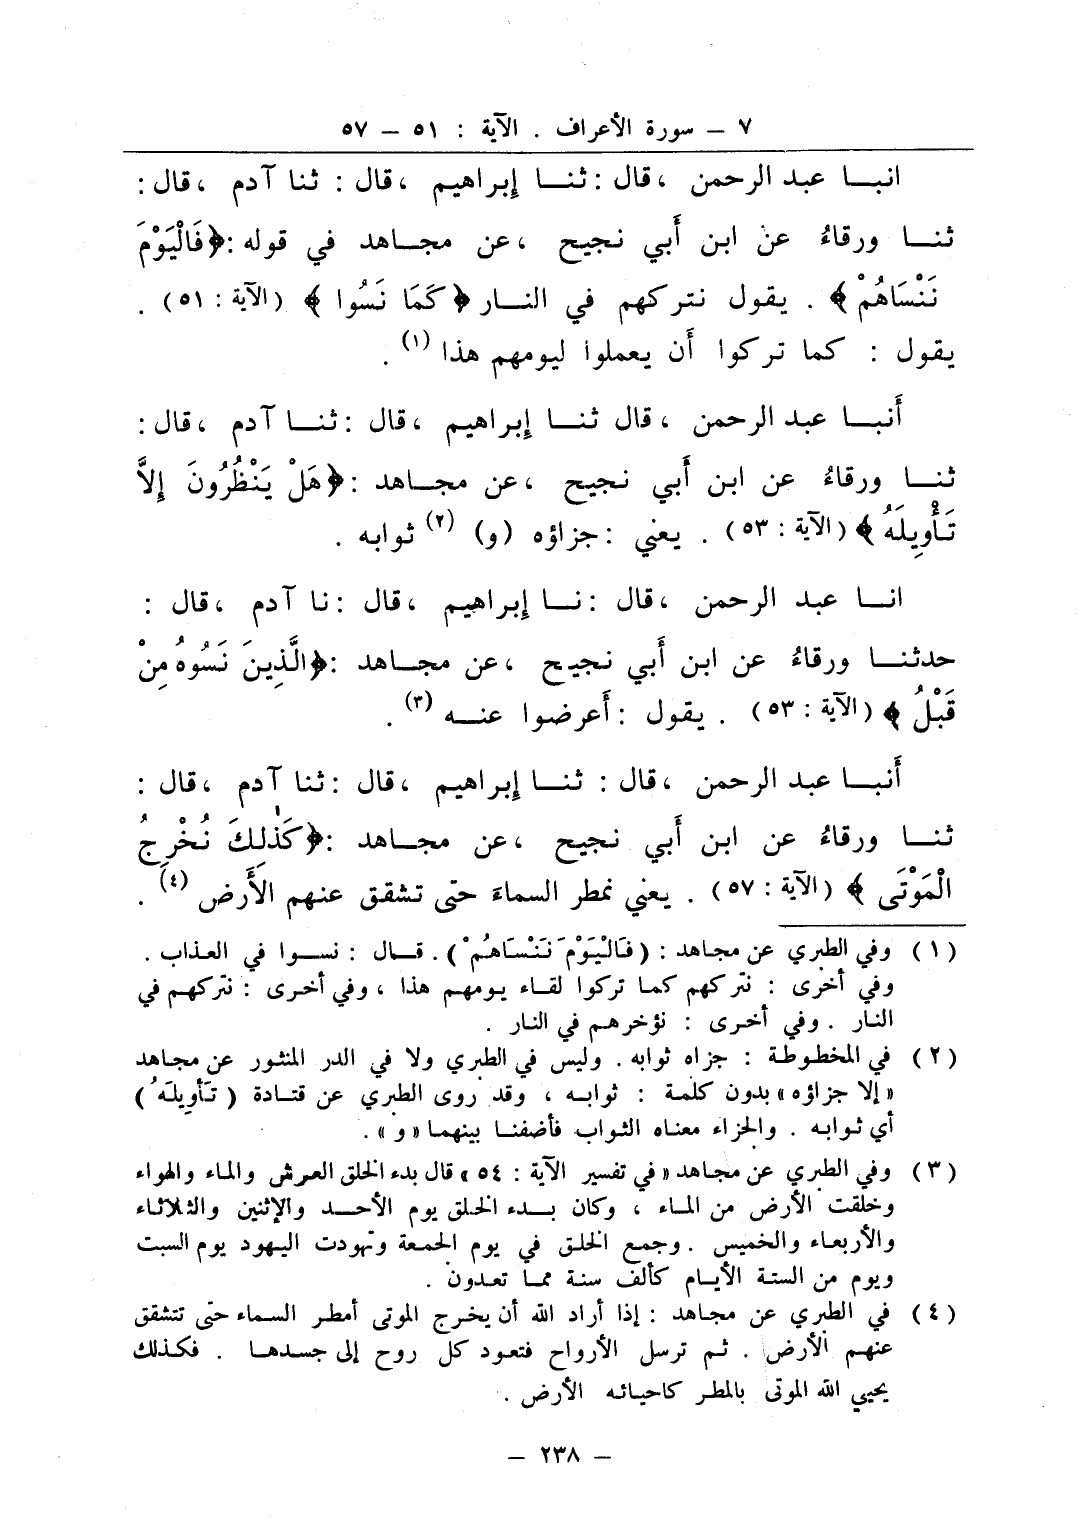 ٧ – سورة الأعراف . الآية : ٥١ – ٥٧
انبـا عبد الرحمن ، قال : ثنـا إبراهيم ، قال : ثنا آدم ، قال :
ثنـا ورقاءُ عن ابن أَبي نجيح ، عن مجـاهد في قوله : ﴿ فَالْيَوْمَ
نَنْسَاهُمْ ﴾ . يقول نتركهم في النـار ﴿ كَمَا نَسُوا ﴾ ( الآية : ٥١ ) .
يقول : كما تركوا أَن يعملوا ليومهم هذا (١) .
أَنبـا عبد الرحمن ، قال ثنـا إبراهيم ، قال : ثنـا آدم ، قال :
ثنـا ورقاءُ عن ابن أَبي نجيح ، عن مجـاهد : ﴿ هَلْ يَنْظُرُونَ إِلاَّ
تَأْوِيلَهُ ﴾ ( الآية : ٥٣ ) . يعني : جزاؤه (و) (٢) ثوابه .
انـا عبد الرحمن ، قال : نـا إبراهيم ، قال : نا آدم ، قال :
حدثنـا ورقاءُ عن ابن أَبي نجيح ، عن مجـاهد : ﴿ الَّذِينَ نَسُوهُ مِنْ
قَبْلُ ﴾ ( الآية : ٥٣ ) . يقول : أَعرضوا عنـه (٣) .
أَنبـا عبد الرحمن ، قال : ثنـا إبراهيم ، قال : ثنا آدم ، قال :
ثنـا ورقاءُ عن ابن أَبي نجيح ، عن مجـاهد : ﴿ كَذٰلِكَ نُخْرِجُ
الْمَوْتَى ﴾ ( الآية : ٥٧ ) . يعني نمطر السماءَ حتى تشقق عنهم الأَرض (٤) .
( ١ ) وفي الطبري عن مجاهد : ( فَالْيَوْمَ نَنْسَاهُمْ ) . قـال : نسـوا في العذاب .
وفي أخرى : نتركهم كما تركوا لقـاء يومهم هذا ، وفي أخرى : نتركهم في
النار . وفي أخرى : نؤخرهم في النار .
( ٢ ) في المخطوطة : جزاه ثوابه . وليس في الطبري ولا في الدر المنثور عن مجاهد
« إلا جزاؤه » بدون كلمة : ثوابـه ، وقد روى الطبري عن قتـادة ( تَأوِيلَهُ )
أي ثوابه . والجزاء معناه الثواب فأضفنـا بينهما « و » .
( ٣ ) وفي الطبري عن مجاهد « في تفسير الآية : ٥٤ » قال بدء الخلق العرش والماء والهواء
وخلقت الأرض من المـاء ، وكان بـدء الخلق يوم الأحـد والإثنين والثلاثـاء
والأربعـاء والخميس . وجمع الخلق في يوم الجمعة وتهودت اليهود يوم السبت
ويوم من الستة الأيـام كألف سنة ممـا تعدون .
( ٤ ) في الطبري عن مجاهد : إذا أراد الله أن يخرج الموتى أمطر السماء حتى تتشقق
عنهم الأرض . ثم ترسل الأرواح فتعود كل روح إلى جسدهـا . فكذلك
يحيي الله الموتى بالمطر كاحيائه الأرض .
– ٢٣٨ –